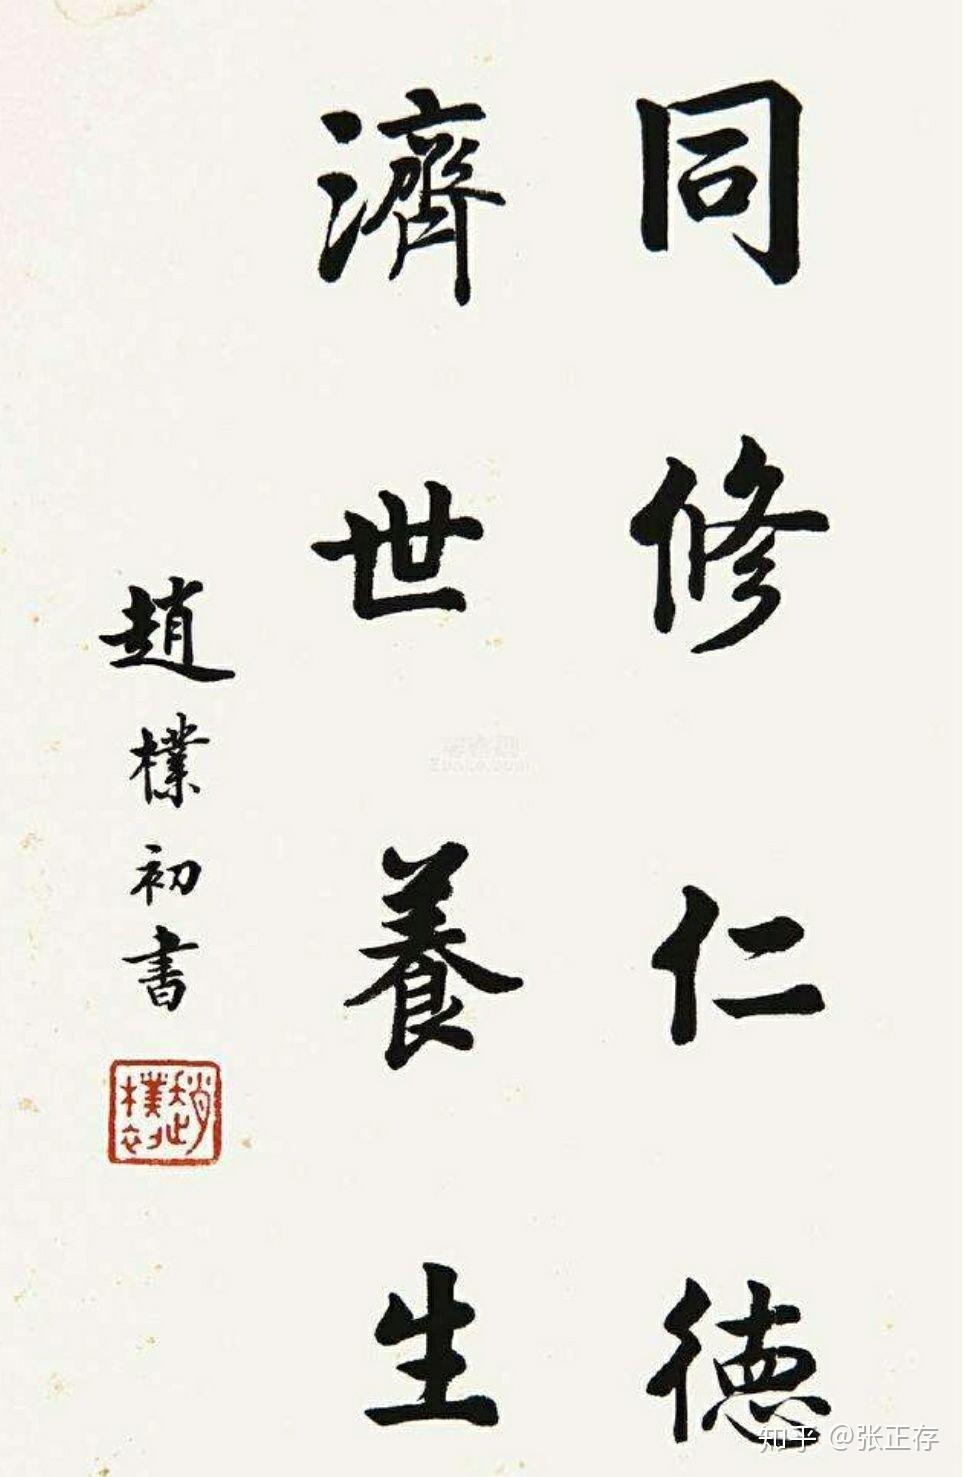 同修仁德
濟世養生
趙樸初書
趙樸初
知乎 @张正存